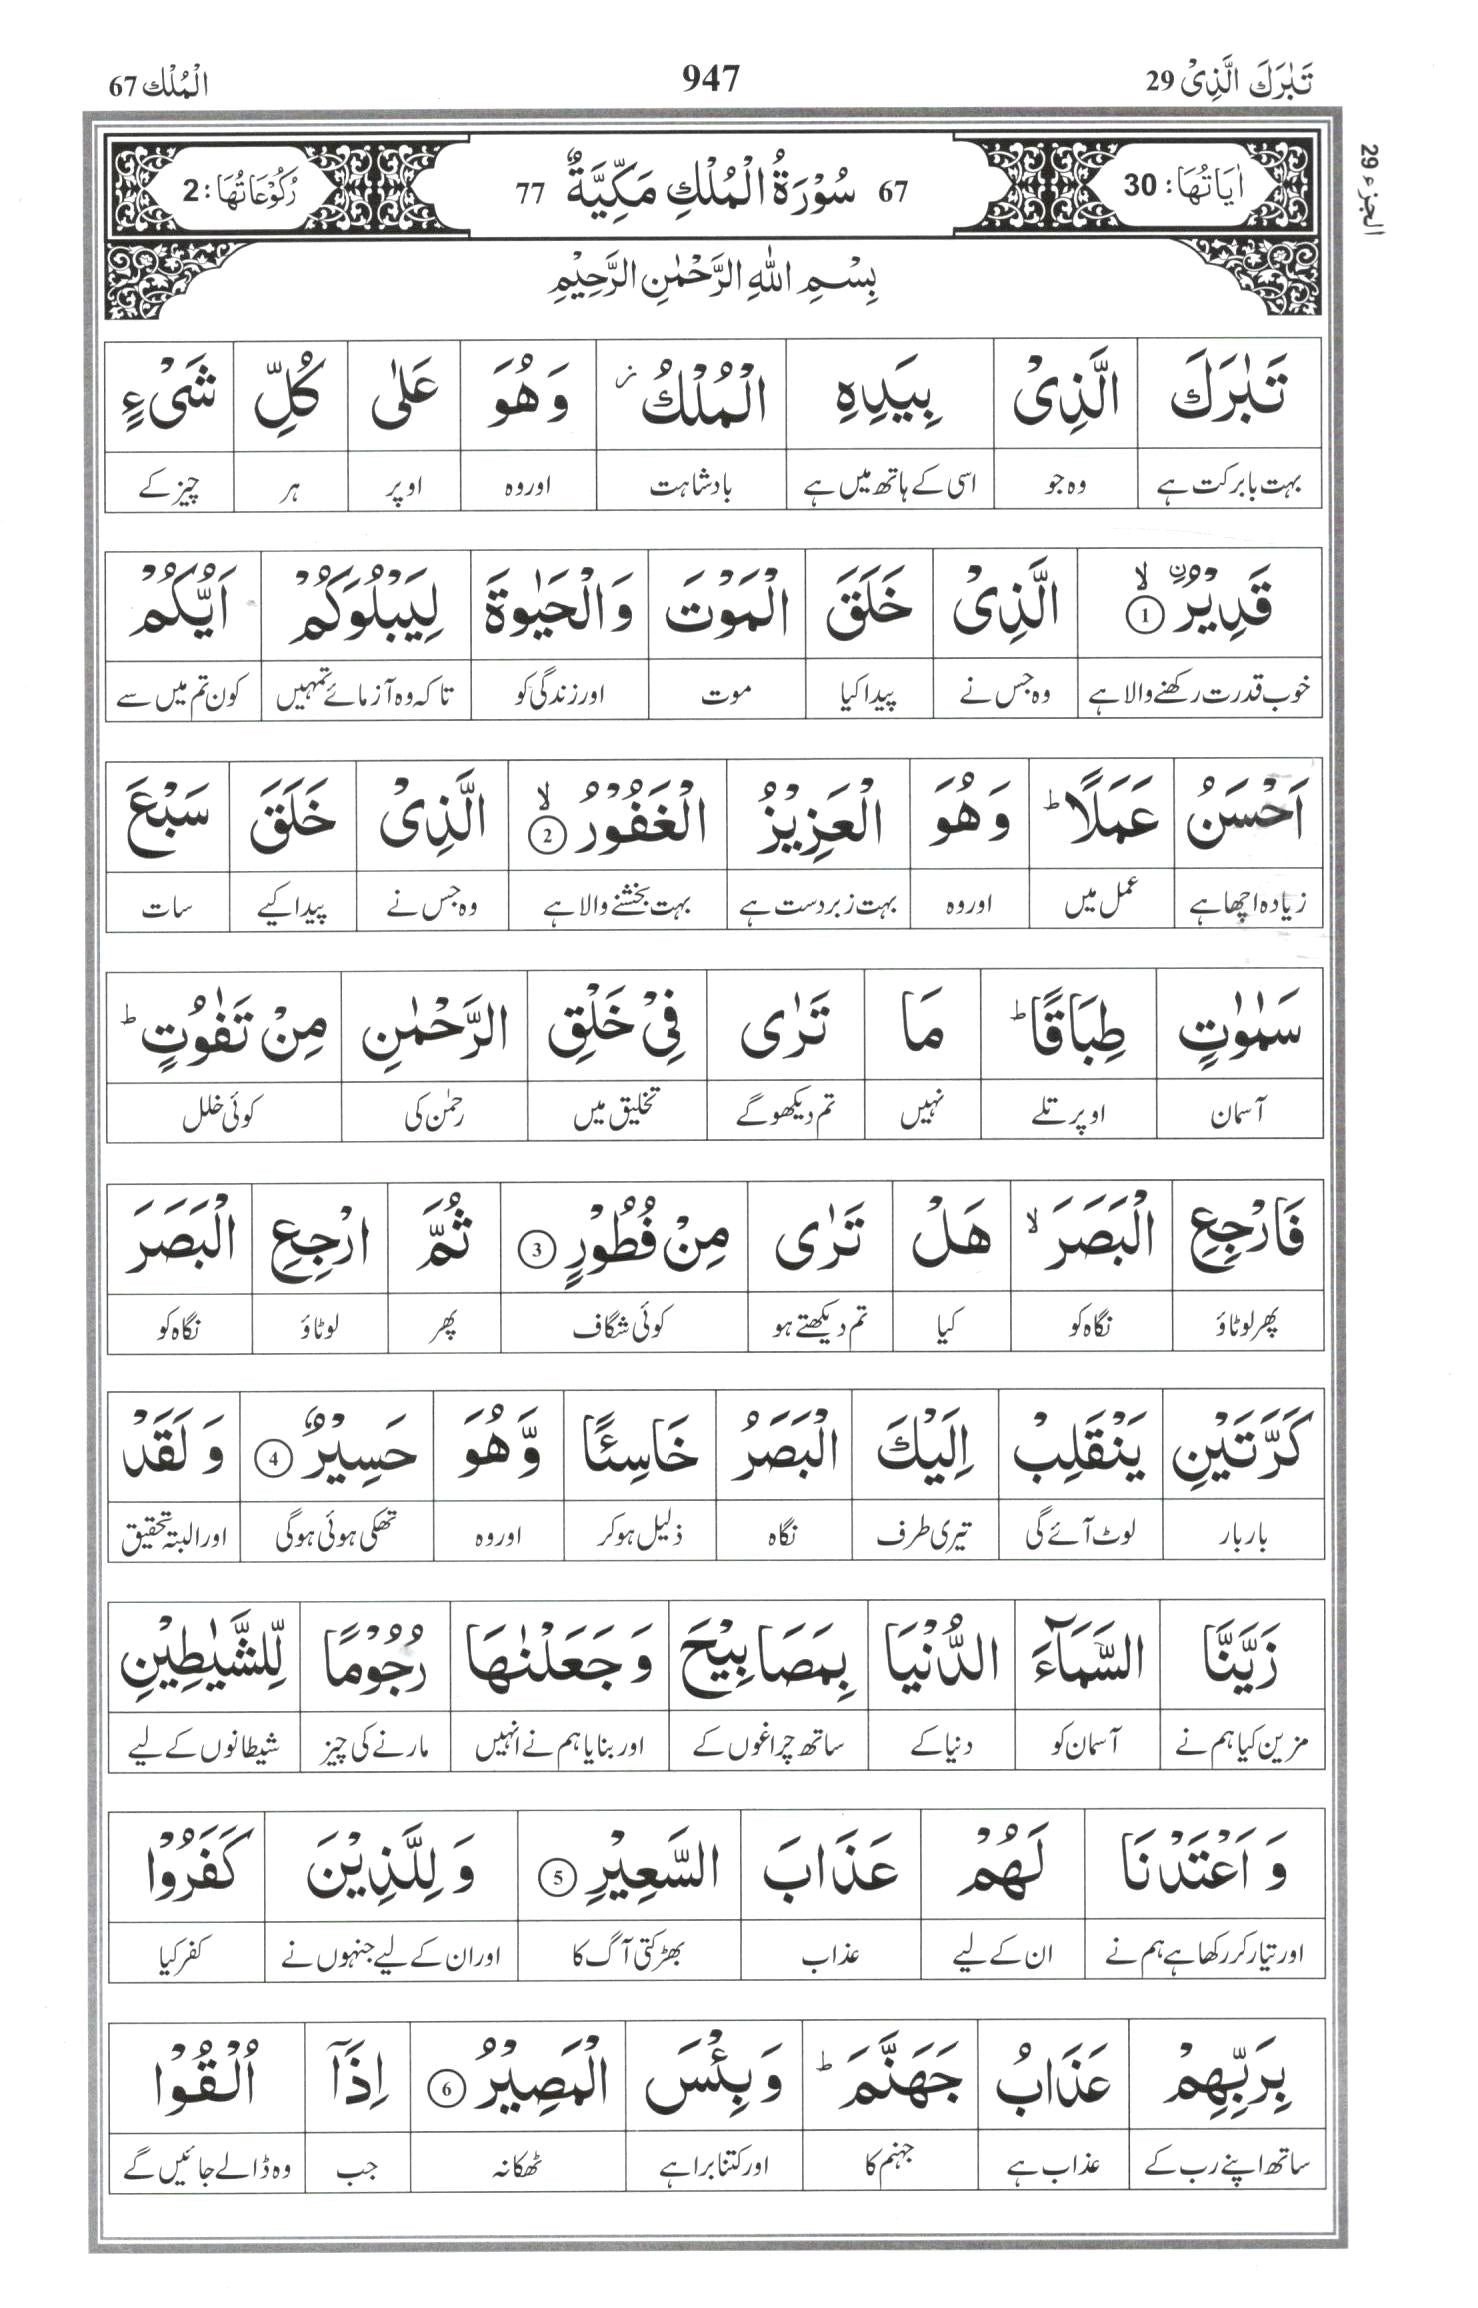 تَبٰرَكَ الَّذِىْ 29 947 الْمُلْك 67
الجزء 29
اٰيَاتُهَا: 30 67 سُوْرَةُ الْمُلْكِ مَكِّيَّةٌ 77 رُكُوْعَاتُهَا: 2
بِسْمِ اللهِ الرَّحْمٰنِ الرَّحِيْمِ
تَبٰرَكَ الَّذِىْ بِيَدِهِ الْمُلْكُ ز وَهُوَ عَلٰى كُلِّ شَىْءٍ
بہت بابرکت ہے وہ جو اسی کے ہاتھ میں ہے بادشاہت اور وہ اوپر ہر چیز کے
قَدِيْرُۨ ۙ 1 الَّذِىْ خَلَقَ الْمَوْتَ وَالْحَيٰوةَ لِيَبْلُوَكُمْ اَيُّكُمْ
خوب قدرت رکھنے والا ہے وہ جس نے پیدا کیا موت اور زندگی کو تاکہ وہ آزمائے تمہیں کون تم میں سے
اَحْسَنُ عَمَلًا ؕ وَهُوَ الْعَزِيْزُ الْغَفُوْرُ ۙ 2 الَّذِىْ خَلَقَ سَبْعَ
زیادہ اچھا ہے عمل میں اور وہ بہت زبردست ہے بہت بخشنے والا ہے وہ جس نے پیدا کیے سات
سَمٰوٰتٍ طِبَاقًا ؕ مَا تَرٰى فِىْ خَلْقِ الرَّحْمٰنِ مِنْ تَفٰوُتٍ ؕ
آسمان اوپر تلے نہیں تم دیکھو گے تخلیق میں رحمٰن کی کوئی خلل
فَارْجِعِ الْبَصَرَ ۙ هَلْ تَرٰى مِنْ فُطُوْرٍ 3 ثُمَّ ارْجِعِ الْبَصَرَ
پھر لوٹاؤ نگاہ کو کیا تم دیکھتے ہو کوئی شگاف پھر لوٹاؤ نگاہ کو
كَرَّتَيْنِ يَنْقَلِبْ اِلَيْكَ الْبَصَرُ خَاسِئًا وَّهُوَ حَسِيْرٌ 4 وَلَقَدْ
بار بار لوٹ آئے گی تیری طرف نگاہ ذلیل ہو کر اور وہ تھکی ہوئی ہوگی اور البتہ تحقیق
زَيَّنَّا السَّمَآءَ الدُّنْيَا بِمَصَابِيْحَ وَجَعَلْنٰهَا رُجُوْمًا لِّلشَّيٰطِيْنِ
مزین کیا ہم نے آسمان کو دنیا کے ساتھ چراغوں کے اور بنایا ہم نے انہیں مارنے کی چیز شیطانوں کے لیے
وَاَعْتَدْنَا لَهُمْ عَذَابَ السَّعِيْرِ 5 وَلِلَّذِيْنَ كَفَرُوْا
اور تیار کر رکھا ہے ہم نے ان کے لیے عذاب بھڑکتی آگ کا اور ان کے لیے جنہوں نے کفر کیا
بِرَبِّهِمْ عَذَابُ جَهَنَّمَ ؕ وَبِئْسَ الْمَصِيْرُ 6 اِذَآ اُلْقُوْا
ساتھ اپنے رب کے عذاب ہے جہنم کا اور کتنا برا ہے ٹھکانہ جب وہ ڈالے جائیں گے